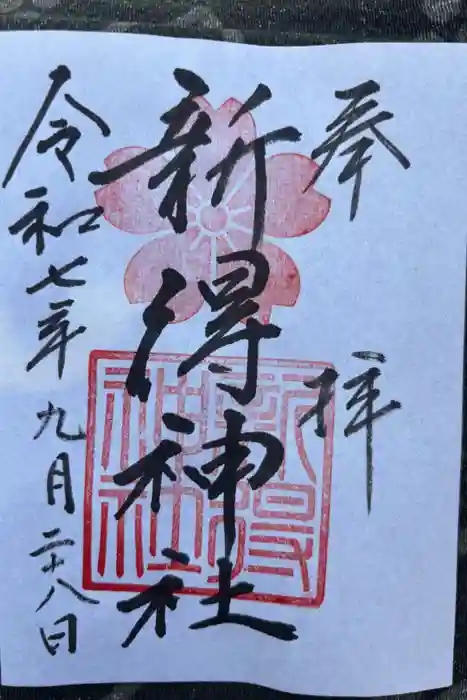 奉拝
新得神社
新得神社
令和七年九月二十八日